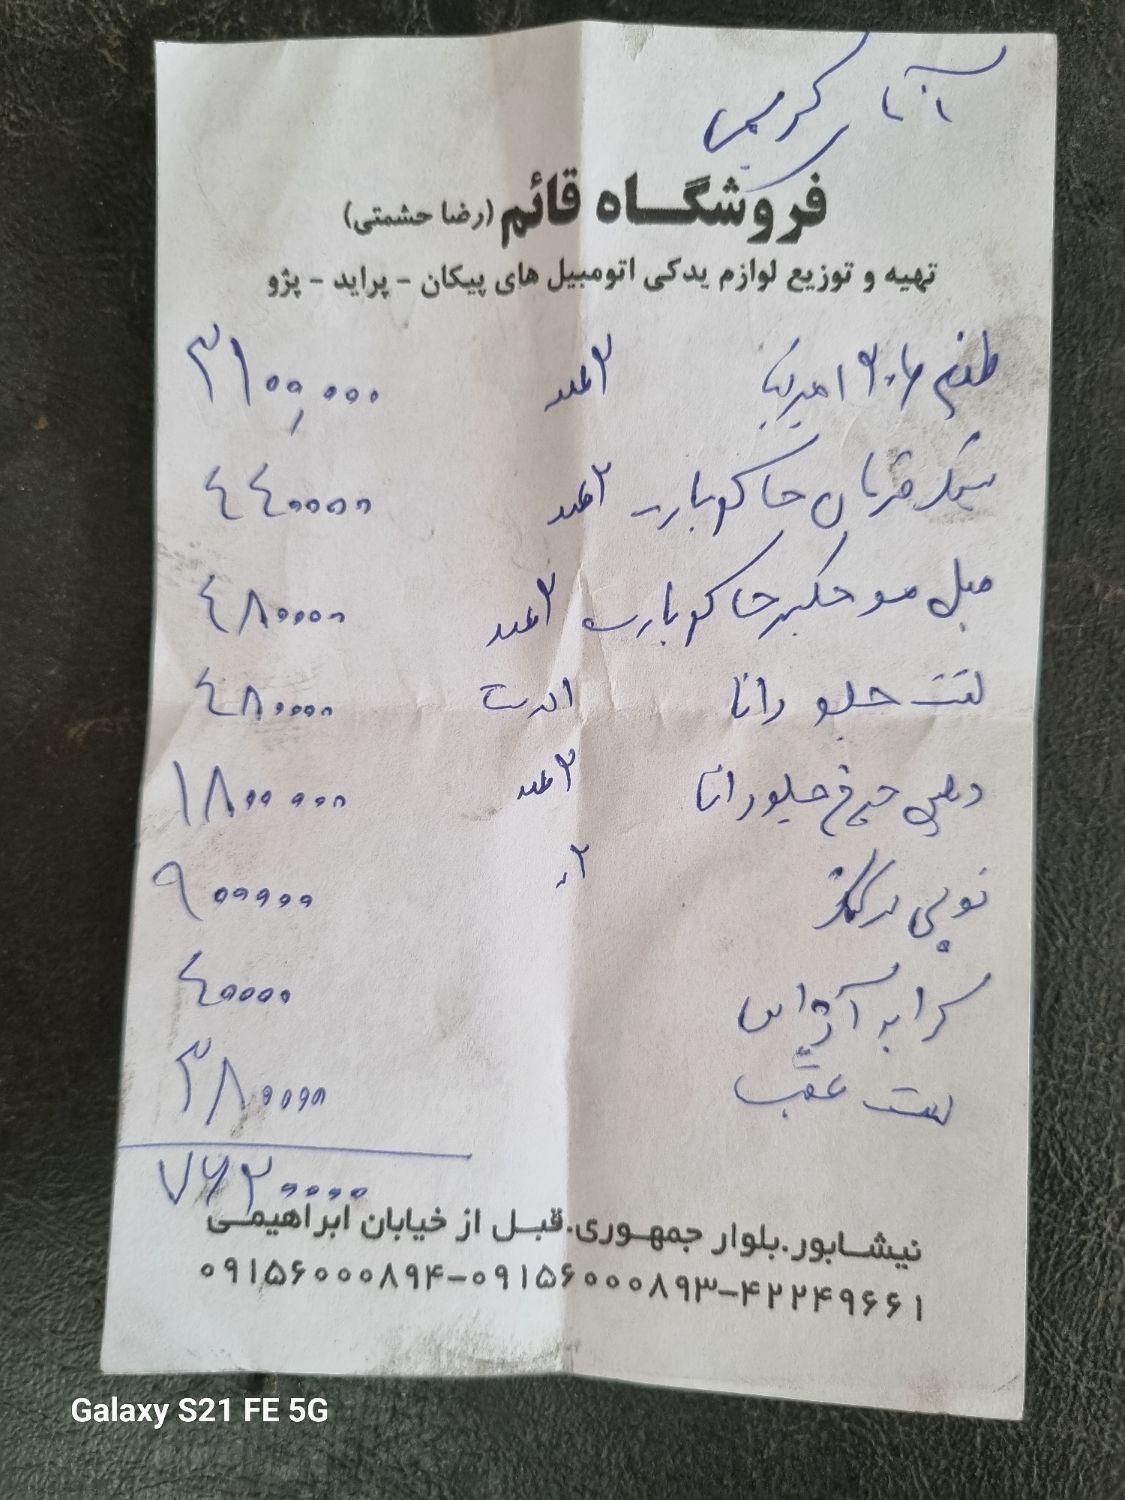 آقا کریمی
فروشگاه قائم (رضا حشمتی)
تهیه و توزیع لوازم یدکی اتومبیل های پیکان - پراید - پژو
طبق ۲۰۶ امیرنیا ۲عدد ۳۱۰۰,۰۰۰
سیبک فرمان جاکوپارت ۲عدد ۴۴۰۰۰۰
میل موجگیر جاکوپارت ۲عدد ۴۸۰۰۰۰
لنت جلو رانا ۱دست ۴۸۰۰۰۰
چرخ جلو رانا ۲عدد ۱۸۰۰۰۰۰
توپی ۲ ۹۰۰۰۰۰
کرایه آژانس ۴۰۰۰۰
لنت عقب ۳۸۰۰۰۰
۷۶۲۰۰۰۰
نیشابور.بلوار جمهوری.قبل از خیابان ابراهیمی
۰۹۱۵۶۰۰۰۸۹۴-۰۹۱۵۶۰۰۰۸۹۳-۴۲۲۴۹۶۶۱
Galaxy S21 FE 5G